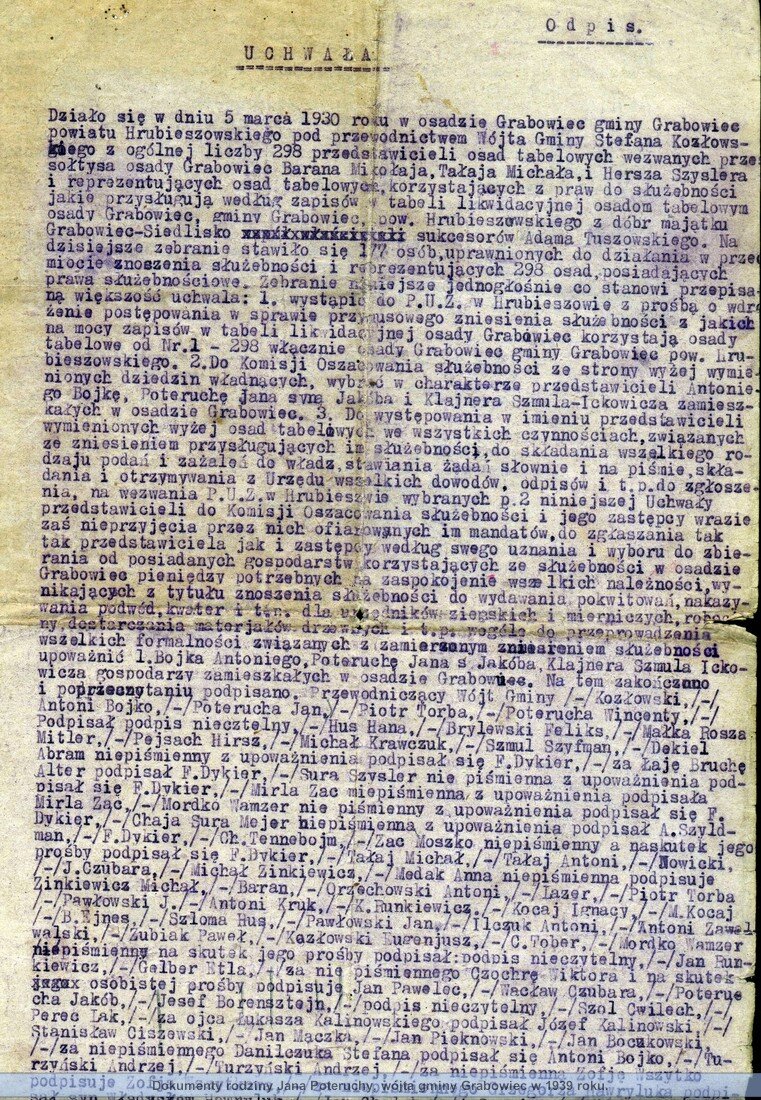 Odpis.
UCHWAŁA
Działo się w dniu 5 marca 1930 roku w osadzie Grabowiec gminy Grabowiec
powiatu Hrubieszowskiego pod przewodnictwem Wójta Gminy Stefana Kozłows-
kiego z ogólnej liczby 298 przedstawicieli osad tabelowych wezwanych przez
sołtysa osady Grabowiec Barana Mikołaja,Tałaja Michała,i Hersza Szyslera
i reprezentujących osad tabelowych,korzystających z praw do służebności
jakie przysługują według zapisów w tabeli likwidacyjnej osadom tabelowym
osady Grabowiec, gminy Grabowiec, pow. Hrubieszowskiego z dóbr majątku
Grabowiec-Siedlisko sukcesorów Adama Tuszowskiego. Na
dzisiejsze zebranie stawiło się 177 osób,uprawnionych do działania w przed
miocie znoszenia służebności i reprezentujących 298 osad,posiadających
prawa służebnościowe. Zebranie niniejsze jednogłośnie co stanowi przepisa-
ną większość uchwala: 1. wystąpić do P.U.Z. w Hrubieszowie z prośbą o wdro
żenie postępowania w sprawie przymusowego zniesienia służebności z jakich
na mocy zapisów w tabeli likwidacyjnej osady Grabowiec korzystają osady
tabelowe od Nr.1 - 298 włącznie osady Grabowiec gminy Grabowiec pow. Hru-
bieszowskiego. 2.Do Komisji Oszacowania służebności ze strony wyżej wymie-
nionych dziedzin władnących, wybrać w charakterze przedstawicieli Antonie-
go Bojkę, Poteruchę Jana syna Jakóba i Klajnera Szmula-Ickowicza zamiesz-
kałych w osadzie Grabowiec. 3. Do występowania w imieniu przedstawicieli
wymienionych wyżej osad tabelowych we wszystkich czynnościach,związanych
ze zniesieniem przysługujących im służebności,do składania wszelkiego ro-
dzaju podań i zażaleń do władz,stawiania żądań słownie i na piśmie,skła-
dania i otrzymywania z Urzędu wszelkich dowodów, odpisów i t.p.do zgłosze-
nia, na wezwania P.U.Z.w Hrubieszowie wybranych p.2 niniejszej Uchwały
przedstawicieli do Komisji Oszacowania służebności i jego zastępcy wrazie
zaś nieprzyjęcia przez nich ofiarowanych im mandatów,do zgłaszania tak
tak przedstawiciela jak i zastępcy według swego uznania i wyboru do zbie-
rania od posiadanych gospodarstw,korzystających ze służebności w osadzie
Grabowiec pieniędzy potrzebnych na zaspokojenie wszelkich należności,wy-
nikających z tytułu znoszenia służebności do wydawania pokwitowań,nakazy-
wania podwód,kwater i t.p. dla urzędników ziemskich i mierniczych,
ny dostarczenia materjałów drzewnych i t.p. wogóle do przeprowadzenia
wszelkich formalności związanych z zamierzonym zniesieniem służebności
upoważnić 1.Bojka Antoniego,Poteruchę Jana s.Jakóba,Klajnera Szmula Icko-
wicza gospodarzy zamieszkałych w osadzie Grabowiec. Na tem zakończono
i po przeczytaniu podpisano. Przewodniczący Wójt Gminy /-/Kozłowski,/-/
Antoni Bojko,/-/Poterucha Jan,/-/Piotr Torba,/-/Poterucha Wincenty,/-/
Podpisał podpis nieczytelny,/-/Hus Hana,/-/Brylewski Feliks,/-/Małka Rosza
Mitler,/-/Pejsach Hirsz,/-/Michał Krawczuk,/-/Szmul Szyfman,/-/Dekiel
Abram niepiśmienny z upoważnienia podpisał się F.Dykier,/-/za Łaję Bruchę
Alter podpisał F.Dykier,/-/Sura Szysler nie piśmienna z upoważnienia pod-
pisał się F.Dykier,/-/Mirla Zac niepiśmienna z upoważnienia podpisała
Mirla Zac,/-/Mordko Wamzer nie piśmienny z upoważnienia podpisał się F.
Dykier,/-/Chaja Sura Mejer niepiśmienna z upoważnienia podpisał A.Szyld-
man,/-/F.Dykier,/-/Ch.Tennebojm,/-/Zac Moszko niepiśmienny a naskutek jego
prośby podpisał się F.Dykier,/-/Tałaj Michał,/-/Tałaj Antoni,/-/Nowicki,
/-/J.Czubara,/-/Michał Zinkiewicz,/-/Medak Anna niepiśmienna podpisuje
Zinkiewicz Michał,/-/Baran,/-/Orzechowski Antoni,/-/Lazer,/-/Piotr Torba
/-/Pawłowski J./-/Antoni Kruk,/-/K.Runkiewicz./-/Kocaj Ignacy,/-/M.Kocaj
/-/B.Ejnes,/-/Szloma Hus,/-/Pawłowski Jan,/-/Ilczuk Antoni,/-/Antoni Zawal-
walski,/-/Żubiak Paweł,/-/Kozłowski Eugenjusz,/-/C.Tober,/-/Mordko Wamzer
niepiśmienny na skutek jego prośby podpisał:podpis nieczytelny,/-/Jan Run-
kiewicz,/-/Gelber Etla,/-/za nie piśmiennego Czochrę Wiktora i na skutek
osobistej prośby podpisuje Jan Pawelec,/-/Wacław Czubara,/-/Poteru
cha Jakób,/-/Josef Borensztejn,/-/podpis nieczytelny,/-/Szol Cwilech,/-/
Perec Lak,/-/za ojca Łukasza Kalinowskiego podpisał Józef Kalinowski,/-/
Stanisław Ciszewski,/-/Jan Mączka,/-/Jan Pieknowski,/-/Jan Boczkowski,
/-/za niepiśmiennego Danilczuka Stefana podpisał się Antoni Bojko,/-/Tu-
rzyński Andrzej,/-/Turzyński Andrzej,/-/za niepiśmienną Zofję Wszytko
podpisuje
Dokumenty rodziny Jana Poteruchy, wójta gminy Grabowiec w 1939 roku.